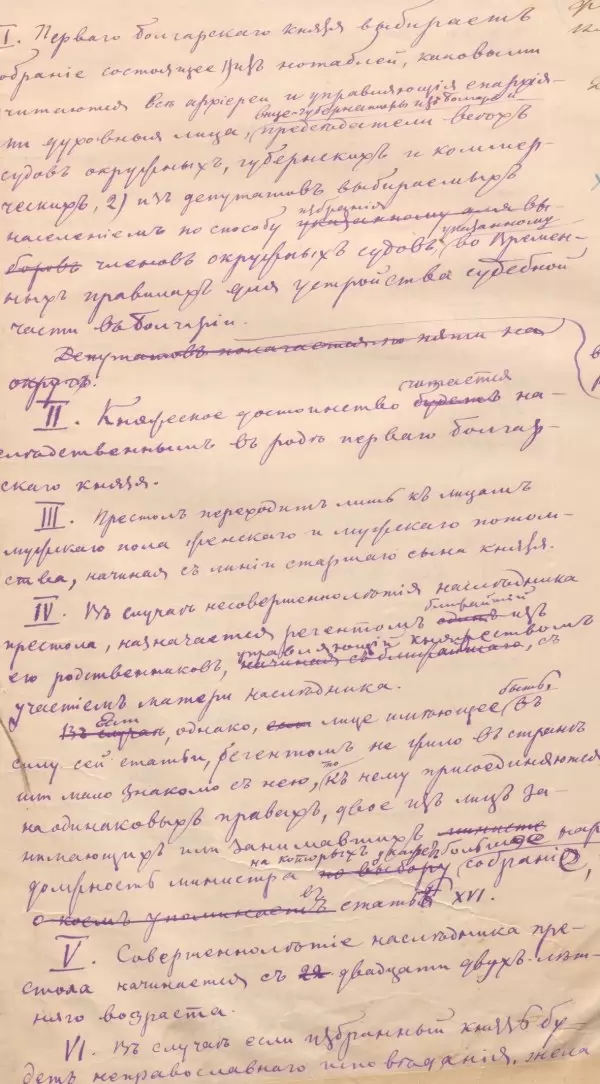 I. Перваго болгарскаго князя выбираетъ
обраніе состоящее 1) изъ нотаблей, каковыми
читаются всѣ архіереи и управляющія епархія-
вице-губернаторы изъ болгаръ и
ми духовныя лица, предсѣдатели всѣхъ
судовъ окружныхъ, губернскихъ и коммер-
ческихъ, 2) изъ депутатовъ выбираемыхъ
избранія
населеніемъ по способу указанному для вы-
указанному
боровъ членовъ окружныхъ судовъ, во Времен-
ныхъ правилахъ для устройства судебной
части въ Болгаріи.
Депутатовъ полагается по пяти на
округъ.
считается
II. Княжеское достоинство будетъ на-
слѣдственнымъ въ родѣ перваго болгар-
скаго князя.
III. Престолъ переходитъ лишь къ лицамъ
мужскаго пола женскаго и мужскаго потом-
ства, начиная съ линіи старшаго сына князя.
IV. Въ случаѣ несовершеннолѣтія наслѣдника
ближайшій
престола, назначается регентомъ одинъ изъ
управляющій княжествомъ
его родственниковъ, начиная съ ближайшаго, съ
участіемъ матери наслѣдника.
Если быть,
Въ случаѣ, однако, если лице имѣющее въ
силу сей статьи, регентомъ не жило въ странѣ
или мало знакомо съ нею, то къ нему присоединяются
на одинаковыхъ правахъ, двое изъ лицъ за-
нимающихъ или занимавшихъ министе
на которыхъ укажетъ большое нар
должность министра по выбору собраніе,
въ
о коемъ упоминаетъ статьѣ XVI.
V. Совершеннолѣтіе наслѣдника пре-
стола начинается съ 22 двадцати двухъ-лѣт-
няго возраста.
VI. Въ случаѣ если избранный князь бу-
детъ неправославнаго исповѣданія, жена